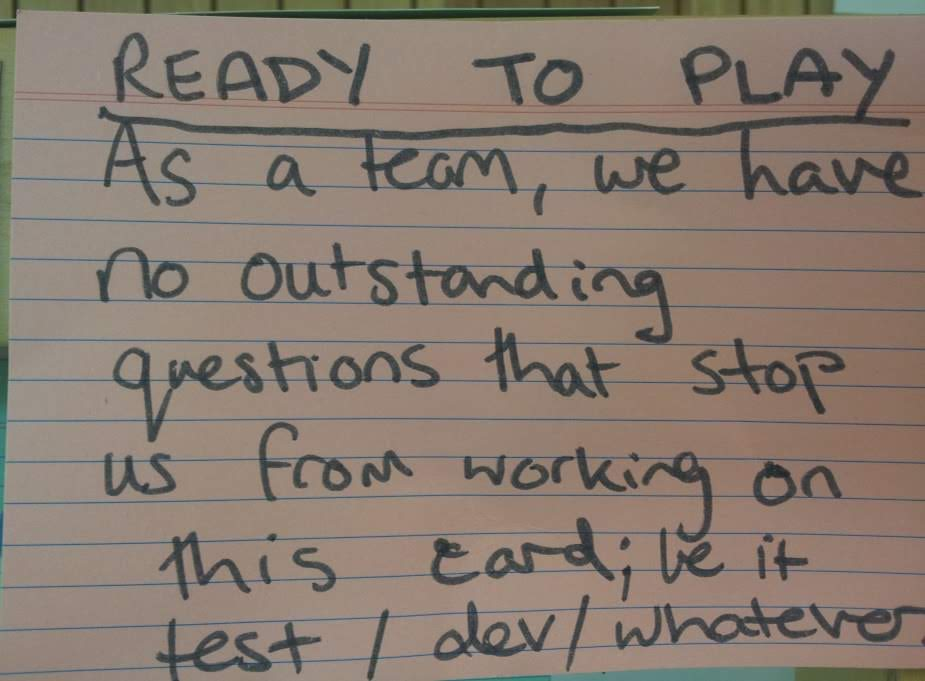 READY TO PLAY
As a team, we have
no outstanding
questions that stop
us from working on
this card; be it
test / dev / whatever.